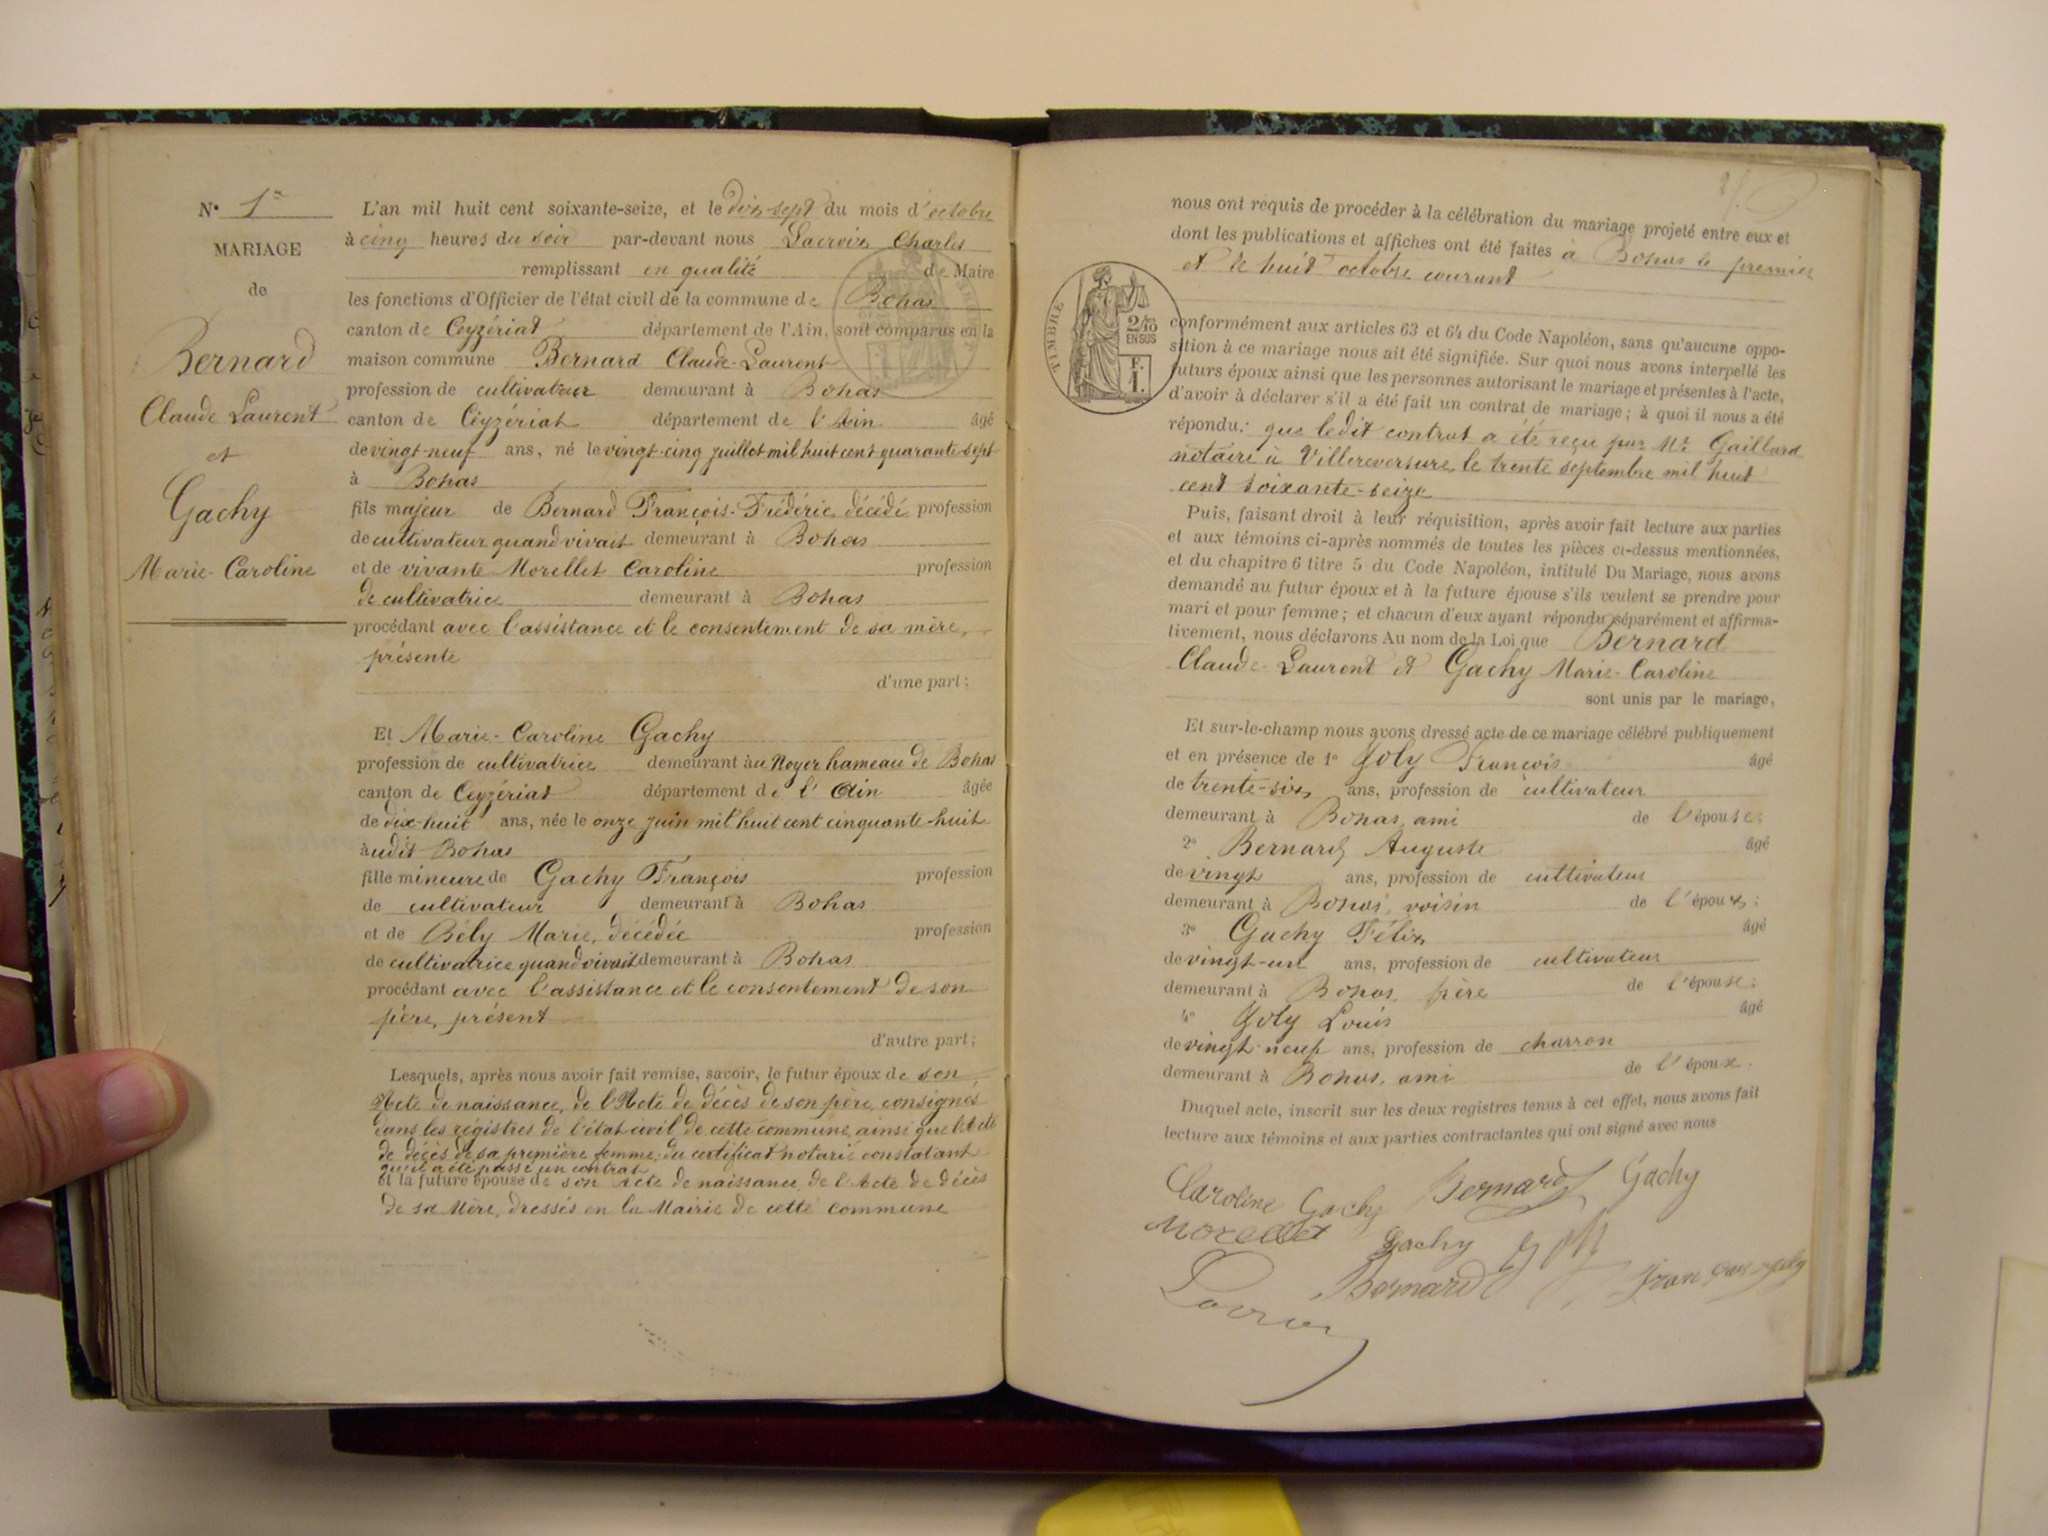 N° 1er
MARIAGE
de
Bernard
Claude Laurent
et
Gachy
Marie-Caroline
L'an mil huit cent soixante-seize, et le dix-sept du mois d'octobre
à cinq heures du soir par-devant nous Lacroix Charles
remplissant en qualité de Maire
les fonctions d'Officier de l'état civil de la commune de Bohas
canton de Ceyzériat département de l'Ain, sont comparus en la
maison commune Bernard Claude-Laurent
profession de cultivateur demeurant à Bohas
canton de Ceyzériat département de l'Ain âgé
de vingt-neuf ans, né le vingt-cinq juillet mil huit cent quarante-sept
à Bohas
fils majeur de Bernard François-Frédéric, décédé profession
de cultivateur quand vivait demeurant à Bohas
et de vivante Morellet Caroline profession
de cultivatrice demeurant à Bohas
procédant avec l'assistance et le consentement de sa mère,
présente
d'une part;
Et Marie-Caroline Gachy
profession de cultivatrice demeurant au Noyer hameau de Bohas
canton de Ceyzériat département de l'Ain âgée
de dix-huit ans, née le onze juin mil huit cent cinquante-huit
audit Bohas
fille mineure de Gachy François profession
de cultivateur demeurant à Bohas
et de Bély Marie, décédée profession
de cultivatrice quand vivait demeurant à Bohas
procédant avec l'assistance et le consentement de son
père, présent
d'autre part;
Lesquels, après nous avoir fait remise, savoir, le futur époux de son
Acte de naissance, de l'Acte de décès de son père, consignés
dans les registres de l'état civil de cette commune, ainsi que l'Acte
de décès de sa première femme; du certificat notarié constatant
qu'il a été passé un contrat
et la future épouse de son Acte de naissance, de l'Acte de décès
de sa Mère, dressés en la Mairie de cette commune
nous ont requis de procéder à la célébration du mariage projeté entre eux et
dont les publications et affiches ont été faites à Bohas le premier
et le huit octobre courant
TIMBRE
2/10
EN SUS
F.
1.
conformément aux articles 63 et 64 du Code Napoléon, sans qu'aucune oppo-
sition à ce mariage nous ait été signifiée. Sur quoi nous avons interpellé les
futurs époux ainsi que les personnes autorisant le mariage et présentes à l'acte,
d'avoir à déclarer s'il a été fait un contrat de mariage; à quoi il nous a été
répondu: que ledit contrat a été reçu par Mr. Gaillard
notaire à Villereversure, le trente septembre mil huit
cent soixante-seize
Puis, faisant droit à leur réquisition, après avoir fait lecture aux parties
et aux témoins ci-après nommés de toutes les pièces ci-dessus mentionnées,
et du chapitre 6 titre 5 du Code Napoléon, intitulé Du Mariage, nous avons
demandé au futur époux et à la future épouse s'ils veulent se prendre pour
mari et pour femme; et chacun d'eux ayant répondu séparément et affirma-
tivement, nous déclarons Au nom de la Loi que Bernard
Claude-Laurent et Gachy Marie-Caroline
sont unis par le mariage,
Et sur-le-champ nous avons dressé acte de ce mariage célébré publiquement
et en présence de 1° Joly François âgé
de trente-six ans, profession de cultivateur
demeurant à Bohas, ami de l'épouse;
2° Bernard Auguste âgé
de vingt ans, profession de cultivateur
demeurant à Bohas, voisin de l'époux;
3° Gachy Félix âgé
de vingt-un ans, profession de cultivateur
demeurant à Bohas, frère de l'épouse;
4° Joly Louis âgé
de vingt-neuf ans, profession de charron
demeurant à Bohas, ami de l'épouse.
Duquel acte, inscrit sur les deux registres tenus à cet effet, nous avons fait
lecture aux témoins et aux parties contractantes qui ont signé avec nous
Caroline Gachy Bernard Gachy
Morellet Gachy
Bernard Joly
Lacroix